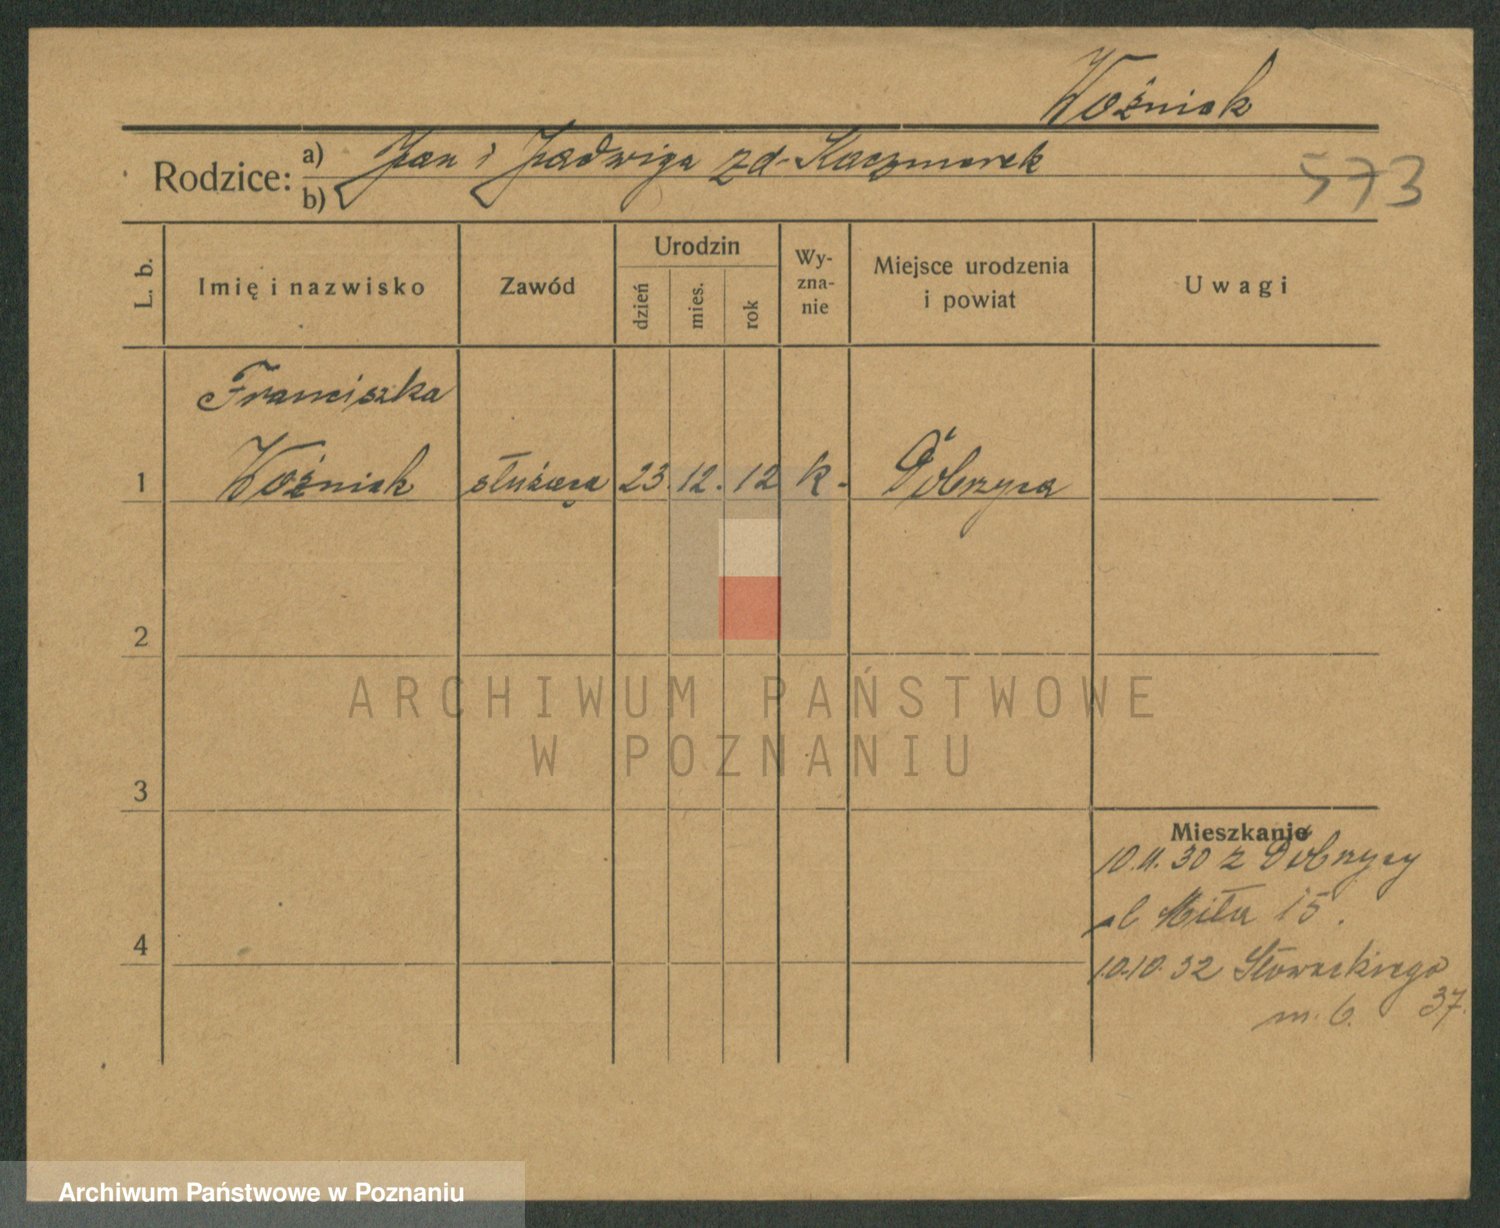 Woźniak
Rodzice: a) Jan i Jadwiga zd. Kaczmarek
b)
573
L. b.
Imię i nazwisko
Zawód
Urodzin
dzień
mies.
rok
Wy-
zna-
nie
Miejsce urodzenia
i powiat
Uwagi
Franciszka
1 Woźniak służąca 23. 12. 12 k. Dobrzyca
2
ARCHIWUM PAŃSTWOWE
W POZNANIU
3
Mieszkanie
10.11.30 z Dobrzycy
Miła 15.
4
10.10.32 Słowackiego
m. 6. 37.
Archiwum Państwowe w Poznaniu